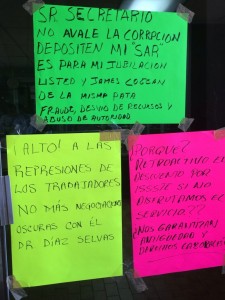 SR. SECRETARIO
NO AVALE LA CORRPCION
DEPOSITEN MI "SAR"
ES PARA MI JUBILACION
USTED Y JAMES COGGAN
DE LA MISMA PATA
FRAUDE, DESVIO DE RECURSOS Y
ABUSO DE AUTORIDAD
¡ALTO! A LAS
REPRESIONES DE
LOS TRABAJADORES
NO MÁS NEGOCIACION
OSCURAS CON ÉL
DR DÍAZ SELVAS
¿PORQUE?
RETROACTIVO EL
DESCUENTO POR
ISSSTE SI NO
SERVICIO???
¡NOS GARANTIZAN
ANTIGUEDAD Y